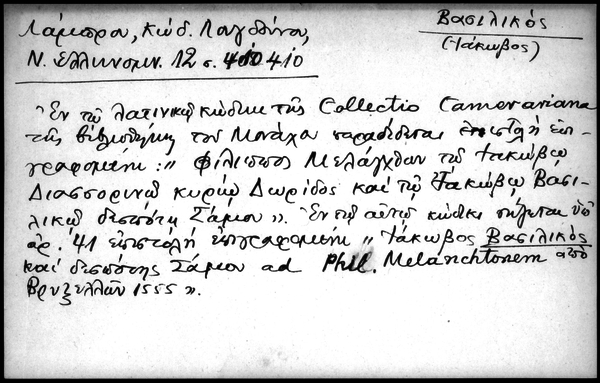 Λάμπρου, Κώδ. Λαγοθύνου,
Ν. Ελληνομν. 12 σ. 410
Βασιλικός
(Ιάκωβος)
Ἐν τῷ λατινικῷ κώδικι τῆς Collectio Camerariana
τῆς βιβλιοθήκης του Μονάχου παραδίδεται ἐπιστολή ἐπι-
γραφομένη: „ Φίλιππος Μελάγχθων τῷ Ιακώβῳ
Διασσορινῷ κυρίῳ Δωρίδος καί τῷ Ἰακώβῳ Βασι-
λικῷ δεσπότῃ Σάμου ». Ἐν τῷ αὐτῷ κώδικι σῴζεται ὑπ'
ἀρ. 41 ἐπιστολή ἐπιγραφομένη „ Ἰάκωβος Βασιλικός
καί δεσπότης Σάμου ad Phil. Melanchtonem ἀπό
Βρυξελλῶν 1555 ».